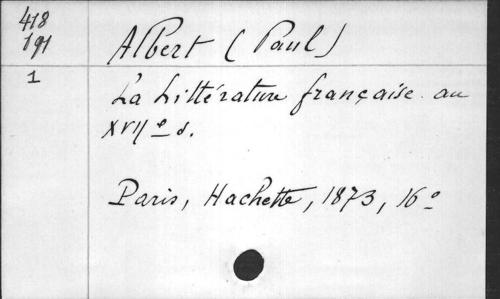 418
191
1
Albert (Paul)
La Littérature française au
XVIIe s.
Paris, Hachette, 1873, 16º